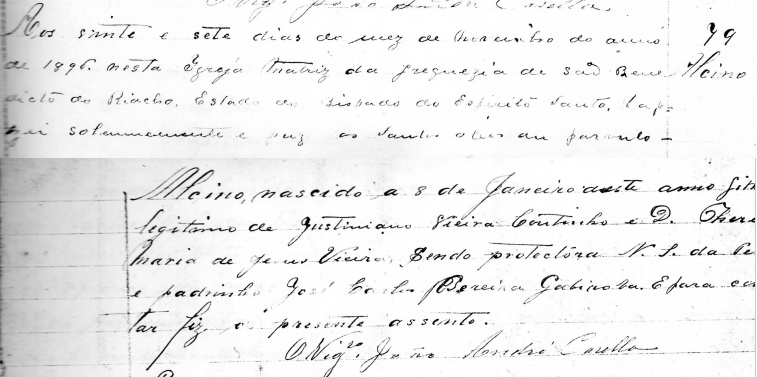 O Vigº. João André Casella.
Aos vinte e sete dias do mez de Fevereiro do anno 79
de 1896. nesta Egreja Matriz da freguezia de São Bene Alcino
dicto do Riacho, Estado do Bispado do Espirito Santo, bap-
tizei solemnemente e puz os Santos oleos ao parvulo -
Alcino, nascido a 8 de Janeiro deste anno filh
legitimo de Justiniano Vieira Coutinho e D. There
Maria de Jesus Vieira, Sendo protectora N. S. da Pe
e padrinho José Carlos Pereira Gabiroba. E para cons
tar fiz o presente assento.
O Vigrº. João André Casella